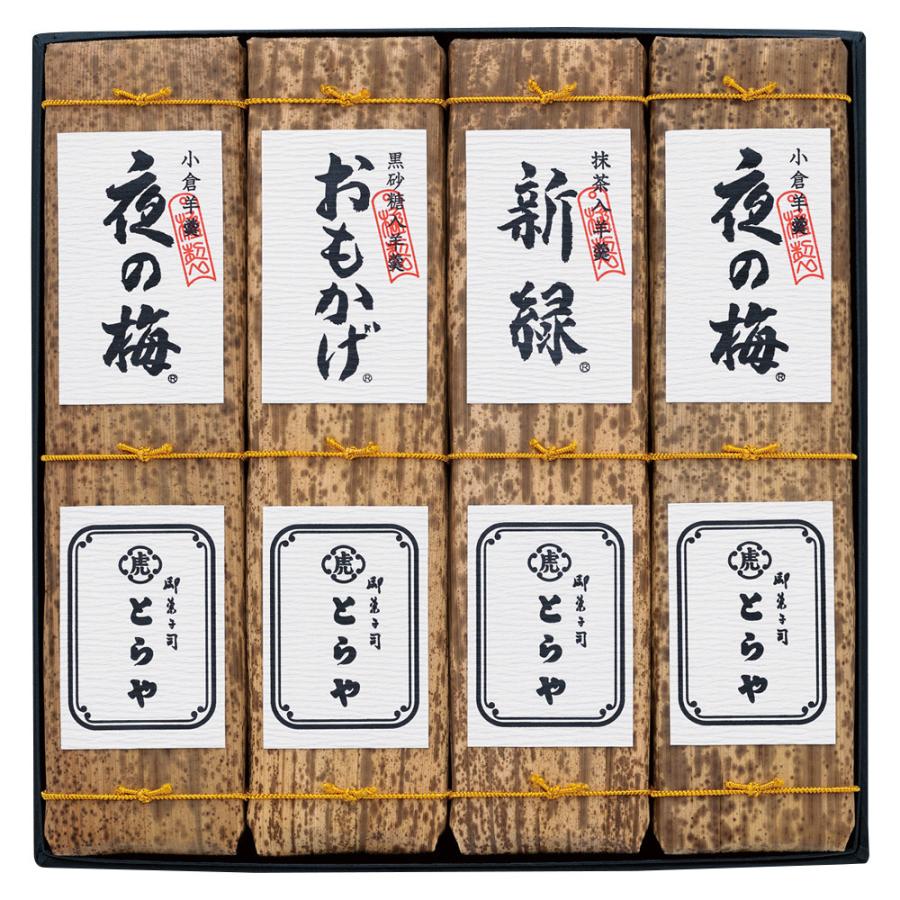 小倉羊羹
夜の梅®
黒砂糖入羊羹
おもかげ®
抹茶入羊羹
新緑®
小倉羊羹
夜の梅®
虎
御菓子司
とらや
虎
御菓子司
とらや
虎
御菓子司
とらや
虎
御菓子司
とらや